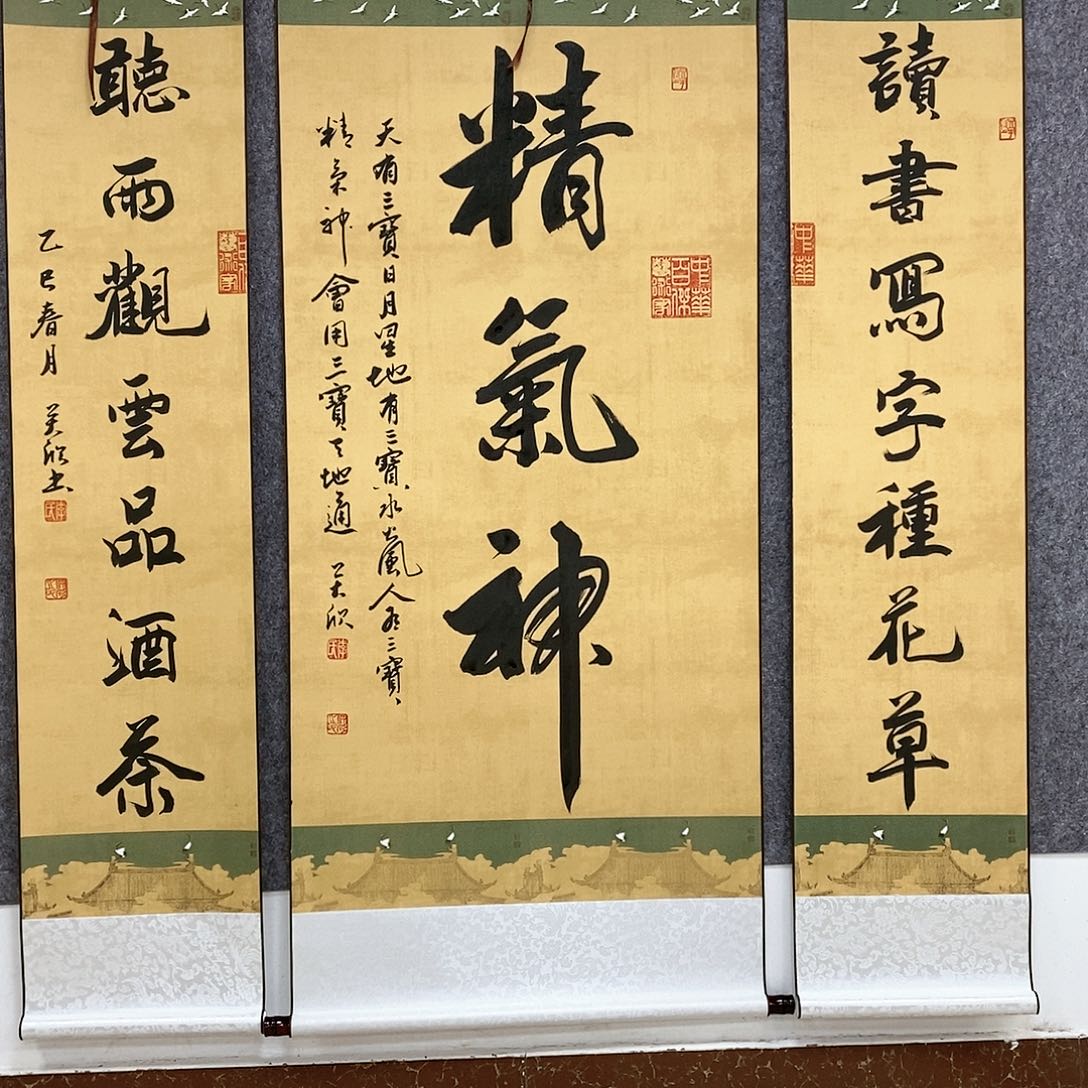 讀書寫字種花草
精氣神
天有三寶日月星地有三寶水火風人有三寶
精氣神會用三寶天地通
聽雨觀雲品酒茶
乙巳春月
中華百傑藝術家